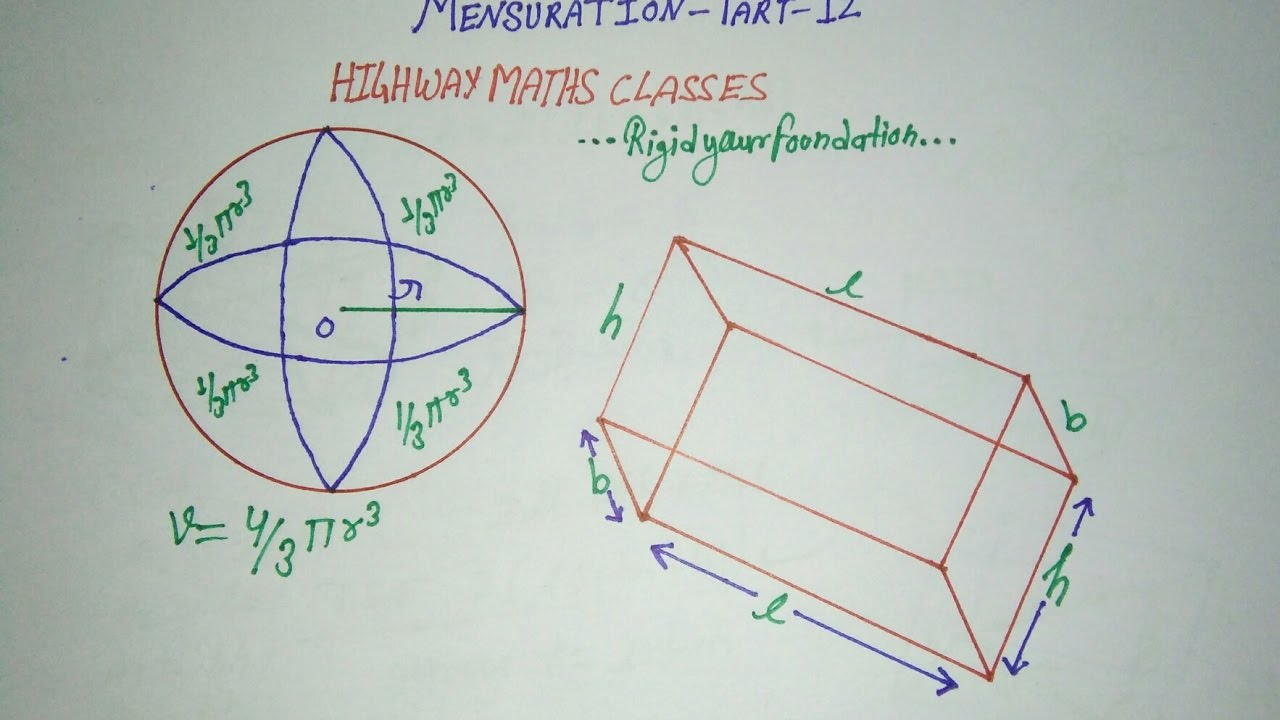 MENSURATION-PART-12
HIGHWAY MATHS CLASSES
...Rigid your foondation...
1/3πr³
1/3πr³
r
O
1/3πr³
1/3πr³
V= 4/3πr³
l
h
b
b
h
l